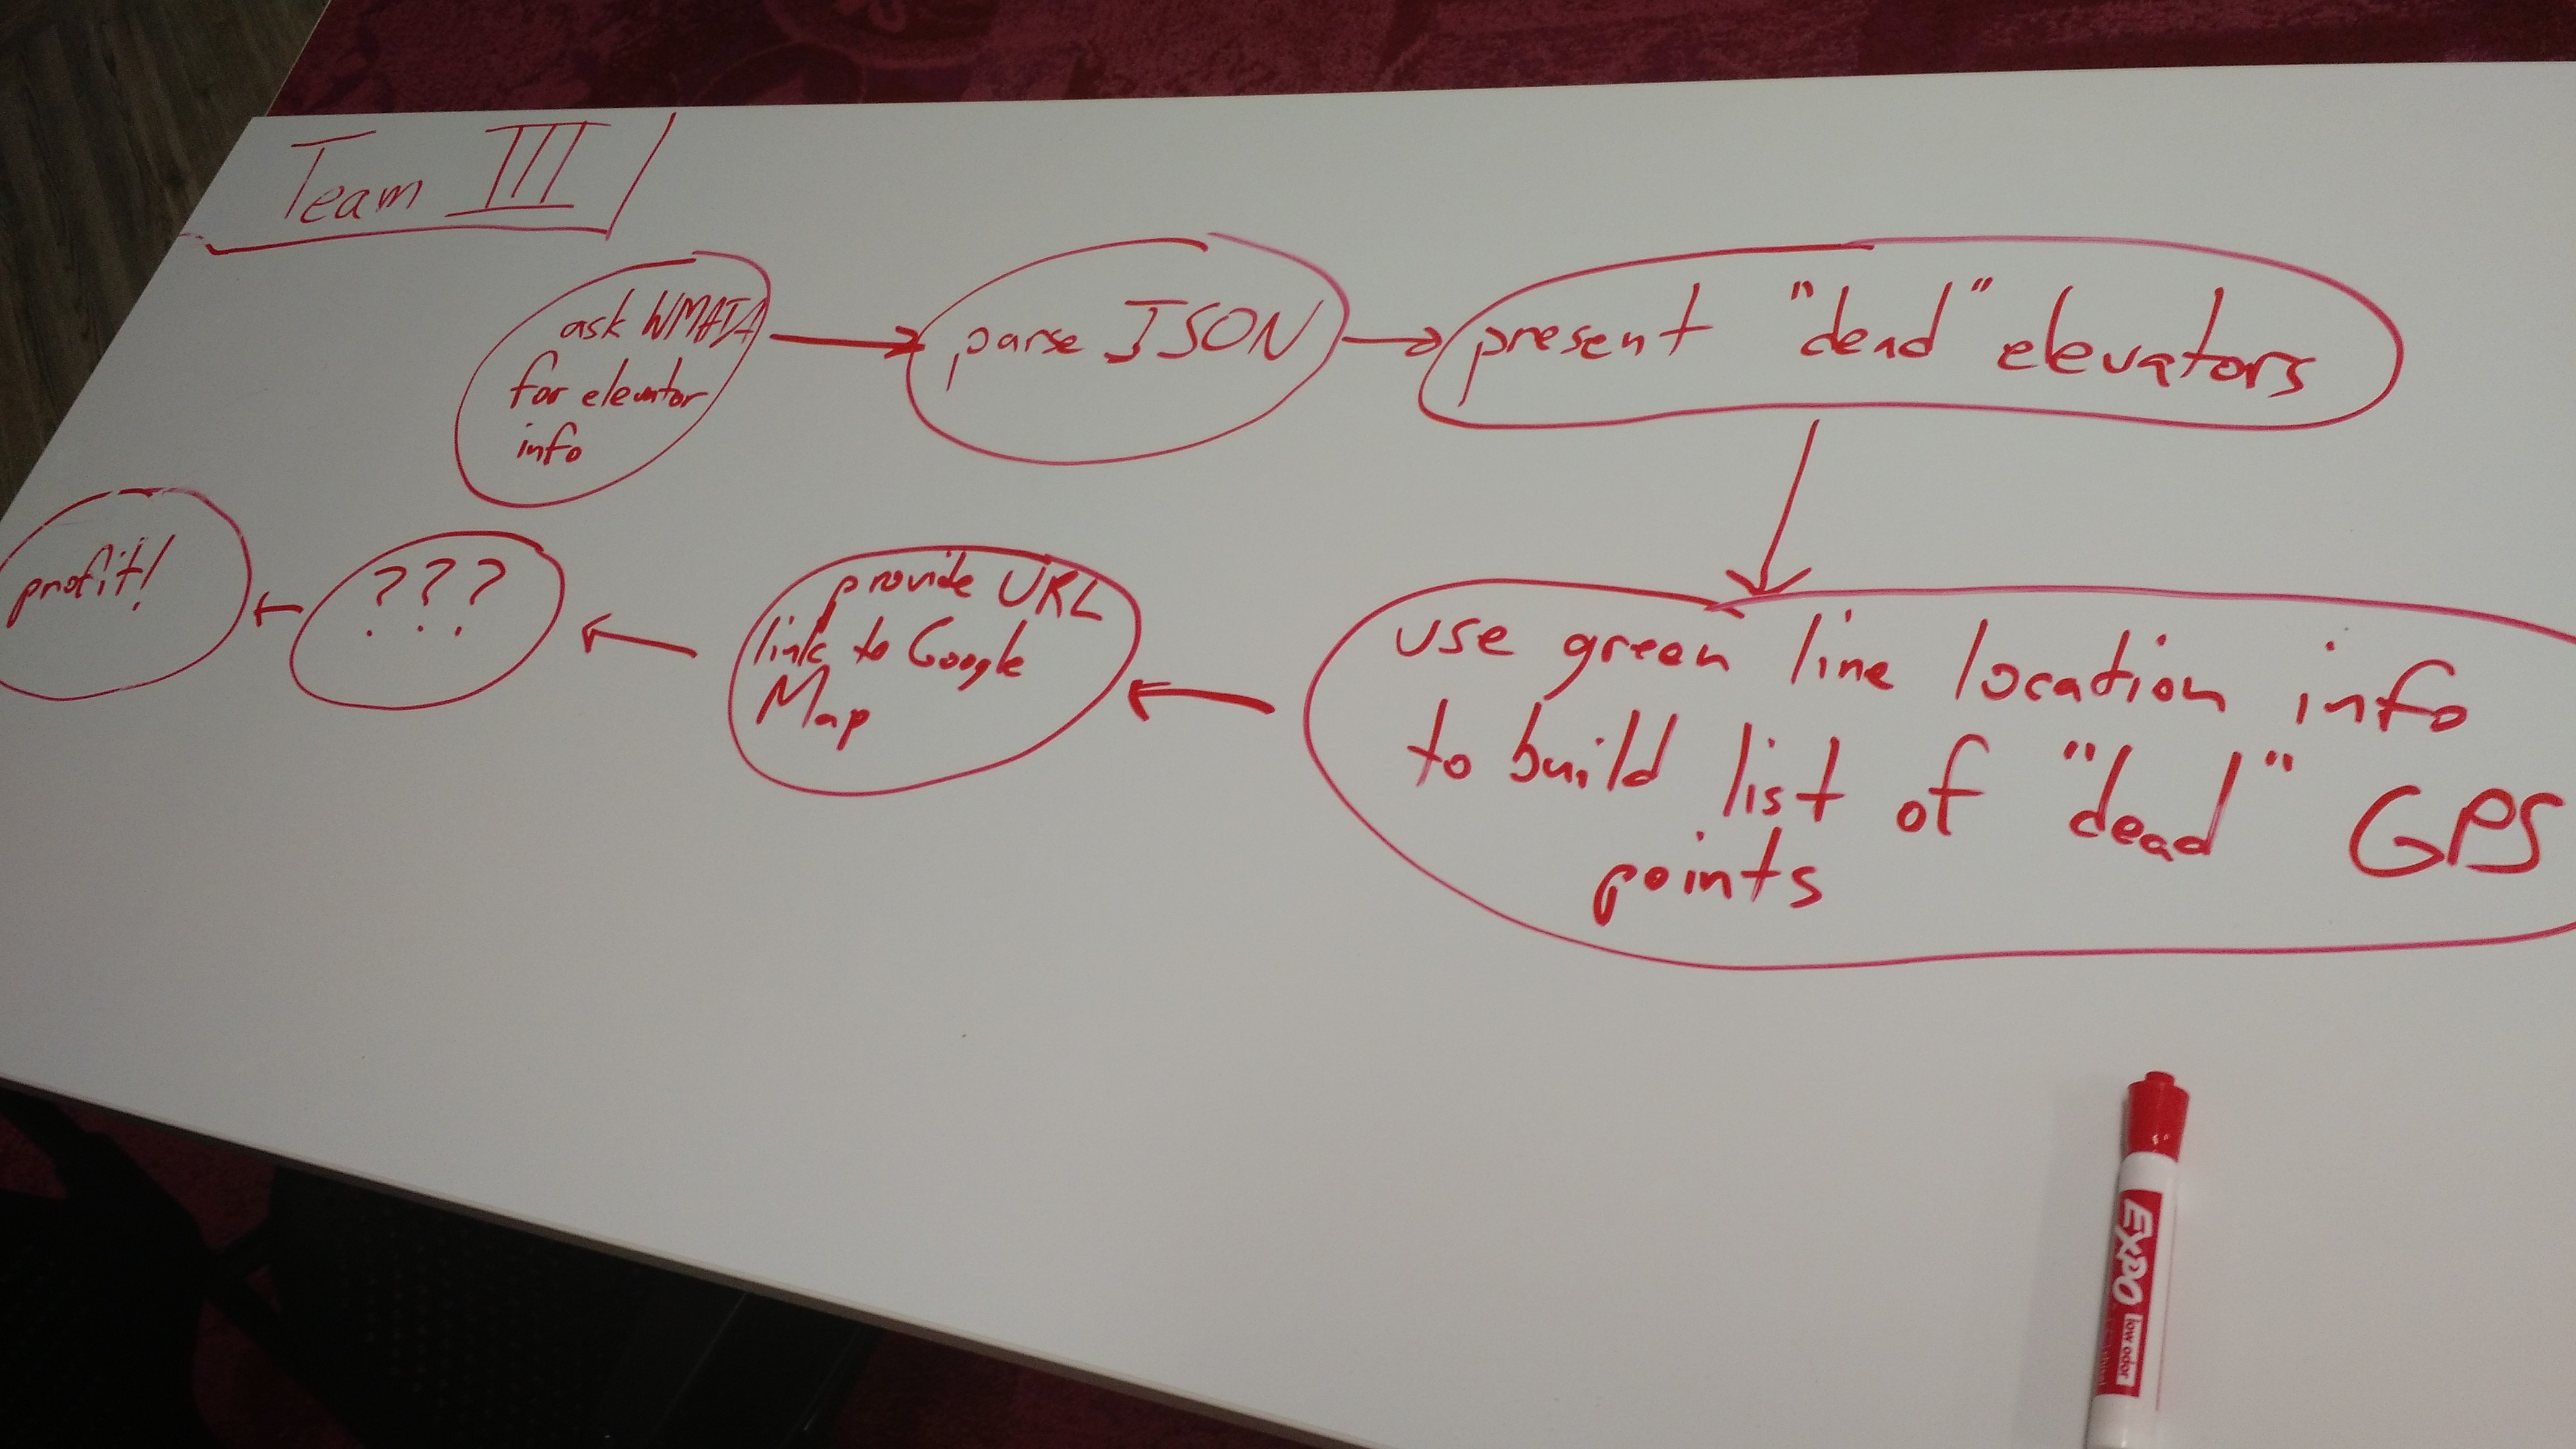 Team III
ask WMATA
for elevator
info
parse JSON
present "dead" elevators
use green line location info
to build list of "dead" GPS
points
provide URL
link to Google
Map
???
profit!
EXPO
low odor